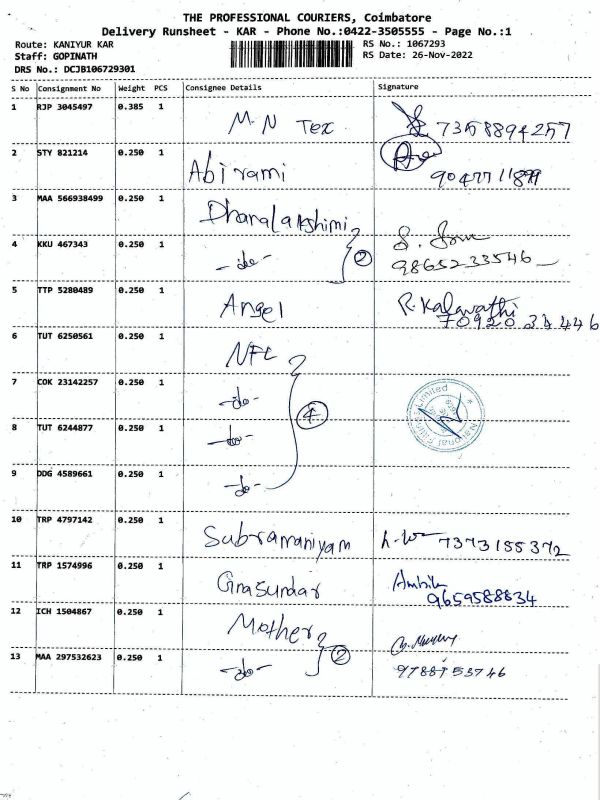 THE PROFESSIONAL COURIERS, Coimbatore
Delivery Runsheet - KAR - Phone No.:0422-3505555 - Page No.:1
Route: KANIYUR KAR
RS No.: 1067293
Staff: GOPINATH
RS Date: 26-Nov-2022
DRS No.: DCJB106729301
S No Consignment No Weight PCS Consignee Details Signature
1 RJP 3045497 0.385 1 M.N Tex 7358894257
2 STY 821214 0.250 1 Abirami
3 MAA 566938499 0.250 1 Dhanalakshimi
4 KKU 467343 0.250 1 -do- 2 9865233546
5 TTP 5280489 0.250 1 Angel R. Kalavathi
70920 34446
6 TUT 6250561 0.250 1 NFL
7 COK 23142257 0.250 1 -do- 4
8 TUT 6244877 0.250 1 -do-
9 DDG 4589661 0.250 1 -do-
10 TRP 4797142 0.250 1 Subramaniyam 7373155372
11 TRP 1574996 0.250 1 Ambik
9659588834
12 ICH 1504867 0.250 1 Mother
13 MAA 297532623 0.250 1 -do- 2 9788153746